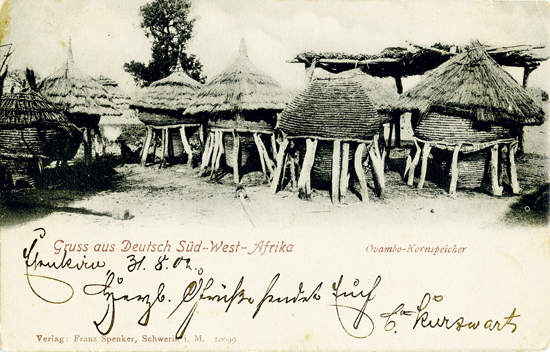 Gruss aus Deutsch Süd-West-Afrika
Ovambo-Kornspeicher
31.8.02.
Herzl. Grüße sendet Euch
Kurswarts
Verlag: Franz Spenker, Schwerin i. M. 20699